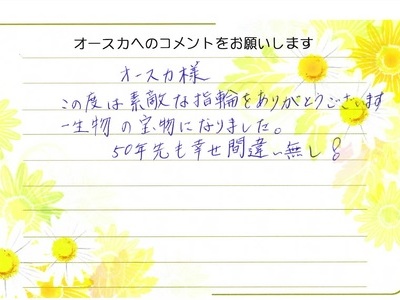 オースカへのコメントをお願いします
オースカ様
この度は素敵な指輪をありがとうございます
一生物の宝物になりました。
50年先も幸せ間違い無し!